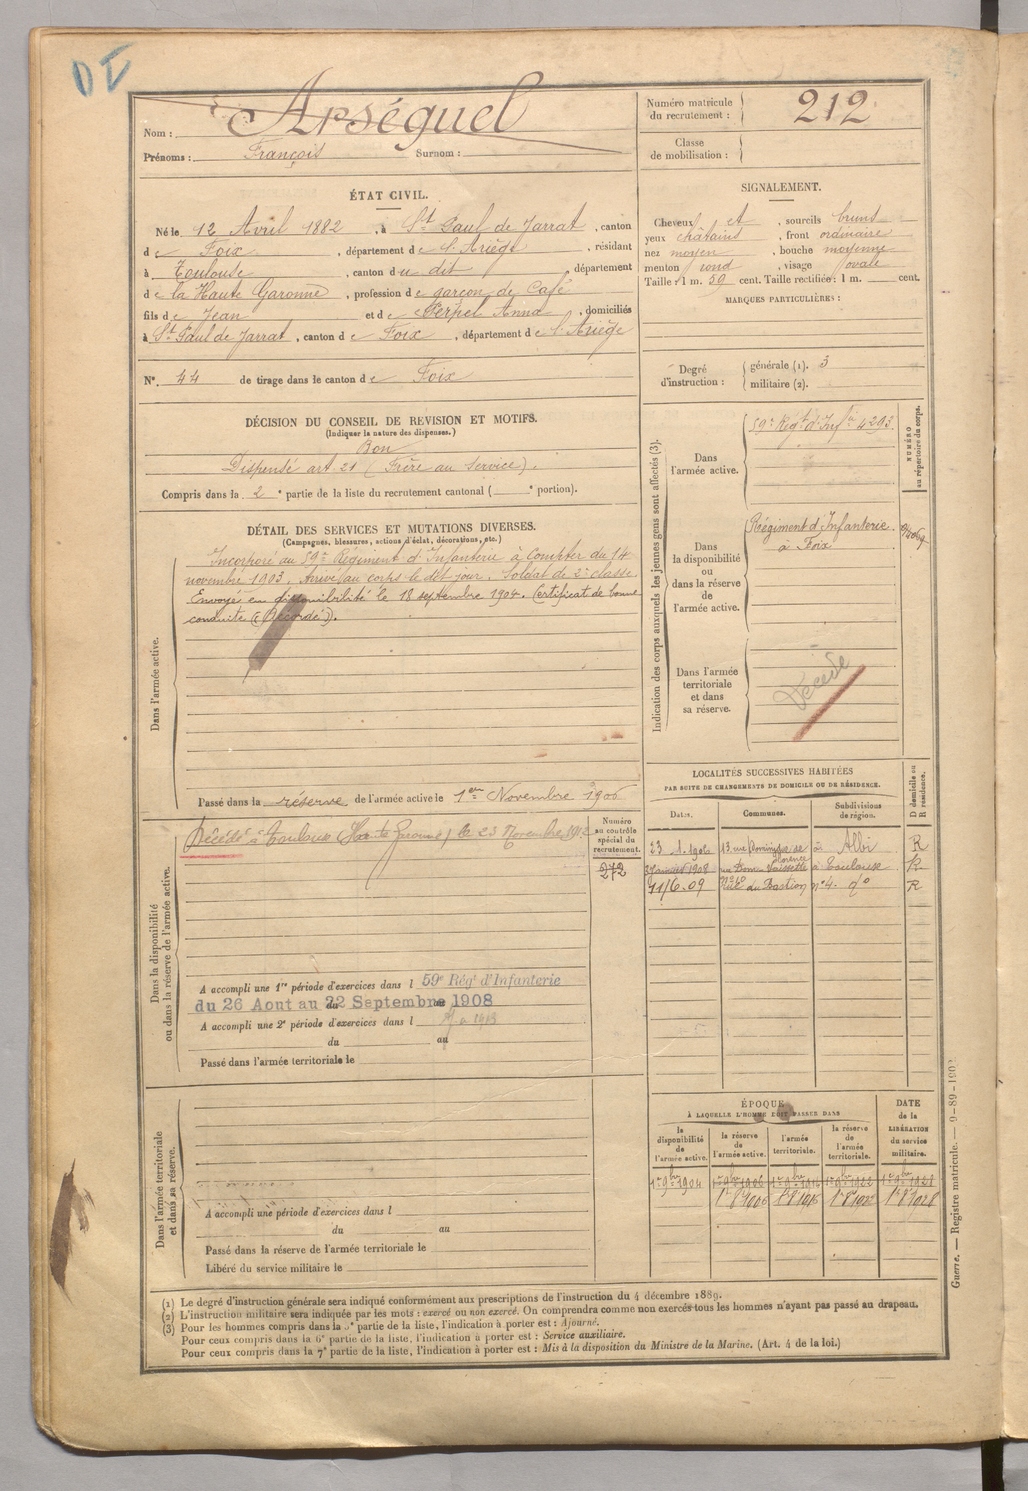 Nom : Arséguel
Prénoms : François Surnom :
Numéro matricule du recrutement : 212
Classe de mobilisation :
ÉTAT CIVIL.
Né le 12 Avril 1882, à St Paul de Jarrat, canton
de Foix, département de l'Ariège, résidant
à Toulouse, canton du dit, département
de la Haute Garonne, profession de garçon de Café
fils de Jean et de Perpet Anna, domiciliés
à St Paul de Jarrat, canton de Foix, département de l'Ariège
N° 44 de tirage dans le canton de Foix
SIGNALEMENT.
Cheveux et, sourcils bruns
yeux châtains, front ordinaire
nez moyen, bouche moyenne
menton rond, visage ovale
Taille : 1 m. 59 cent. Taille rectifiée : 1 m. cent.
MARQUES PARTICULIÈRES :
Degré d'instruction : générale (1). 3
militaire (2).
DÉCISION DU CONSEIL DE REVISION ET MOTIFS.
(Indiquer la nature des dispenses.)
Bon
Dispensé art. 21 (Frère au service).
Compris dans la 2e partie de la liste du recrutement cantonal ( e portion).
DÉTAIL DES SERVICES ET MUTATIONS DIVERSES.
(Campagnes, blessures, actions d'éclat, décorations, etc.)
Dans l'armée active.
Incorporé au 59e Régiment d'Infanterie à compter du 14
novembre 1903. Arrivé au corps le dit jour. Soldat de 2e classe.
Envoyé en disponibilité le 18 septembre 1904. Certificat de bonne
conduite "Accordé".
Passé dans la réserve de l'armée active le 1er Novembre 1906
Indication des corps auxquels les jeunes gens sont affectés (3).
NUMÉRO au répertoire du corps.
Dans l'armée active.
59e Régt d'Infie 4293.
Dans la disponibilité ou dans la réserve de l'armée active.
Régiment d'Infanterie
à Foix
Dans l'armée territoriale et dans sa réserve.
Décédé
LOCALITÉS SUCCESSIVES HABITÉES
PAR SUITE DE CHANGEMENTS DE DOMICILE OU DE RÉSIDENCE.
D domicile ou R résidence.
Dates. Communes. Subdivisions de région.
23 1.1906 13 rue à Albi R
3 Janvier 1908 à Toulouse R
11/6.09 Rue du Bastion n° 4. do R
Dans la disponibilité ou dans la réserve de l'armée active.
Décédé à Toulouse (Haute Garonne) le 23 Novembre
Numéro au contrôle spécial du recrutement.
272
A accompli une 1re période d'exercices dans l 59e Régt d'Infanterie
du 26 Aout au 22 Septembre 1908
A accompli une 2e période d'exercices dans l
du au
Passé dans l'armée territoriale le
Dans l'armée territoriale et dans sa réserve.
A accompli une période d'exercices dans l
du au
Passé dans la réserve de l'armée territoriale le
Libéré du service militaire le
ÉPOQUE
À LAQUELLE L'HOMME DOIT PASSER DANS
DATE de la LIBÉRATION du service militaire.
la disponibilité de l'armée active. la réserve de l'armée active. l'armée territoriale. la réserve de l'armée territoriale.
1er 9bre 1904 1er 9bre 1906 1er 9bre 1916 1er 9bre 1922 1er 9bre 1928
1er 8 1906 1er 8 1916 1er 8 1922 1er 8 1928
(1) Le degré d'instruction générale sera indiqué conformément aux prescriptions de l'instruction du 4 décembre 1889.
(2) L'instruction militaire sera indiquée par les mots : exercé ou non exercé. On comprendra comme non exercés tous les hommes n'ayant pas passé au drapeau.
(3) Pour les hommes compris dans la 5e partie de la liste, l'indication à porter est : Ajourné.
Pour ceux compris dans la 6e partie de la liste, l'indication à porter est : Service auxiliaire.
Pour ceux compris dans la 7e partie de la liste, l'indication à porter est : Mis à la disposition du Ministre de la Marine. (Art. 4 de la loi.)